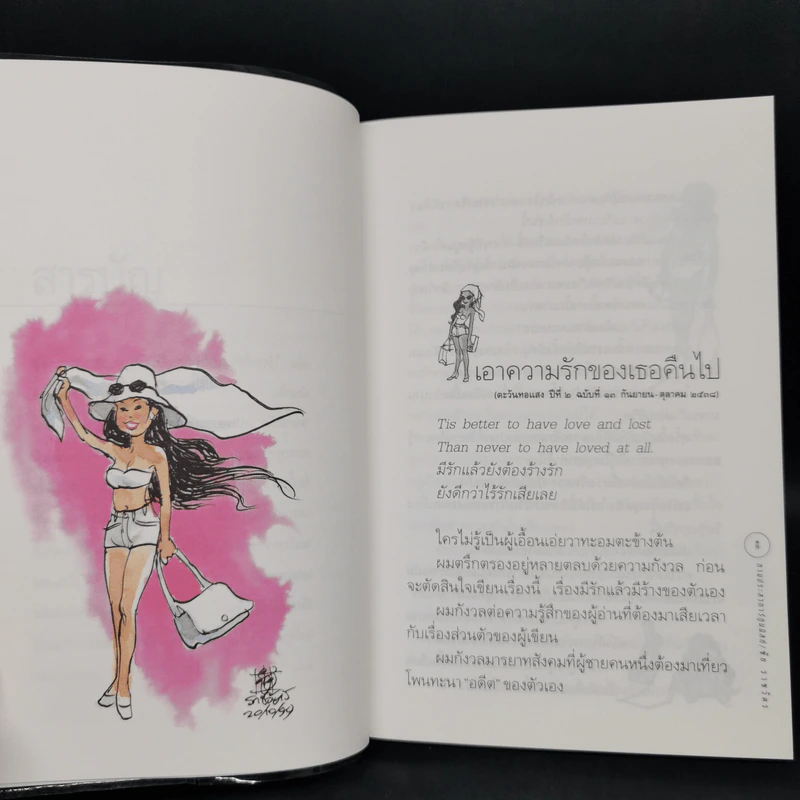 สารบัญ
เอาความรักของเธอคืนไป
(ตะวันทอแสง ปีที่ ๒ ฉบับที่ ๑๓ กันยายน-ตุลาคม ๒๕๓๘)
Tis better to have love and lost
Than never to have loved at all.
มีรักแล้วยังต้องร้างรัก
ยังดีกว่าไร้รักเสียเลย
ใครไม่รู้เป็นผู้เอื้อนเอ่ยวาทะอมตะข้างต้น
ผมตรึกตรองอยู่หลายตลบด้วยความกังวล ก่อน
จะตัดสินใจเขียนเรื่องนี้ เรื่องมีรักแล้วมีร้างของตัวเอง
ผมกังวลต่อความรู้สึกของผู้อ่านที่ต้องมาเสียเวลา
กับเรื่องส่วนตัวของผู้เขียน
ผมกังวลมารยาทสังคมที่ผู้ชายคนหนึ่งต้องมาเที่ยว
โพนทะนา "อดีต" ของตัวเอง